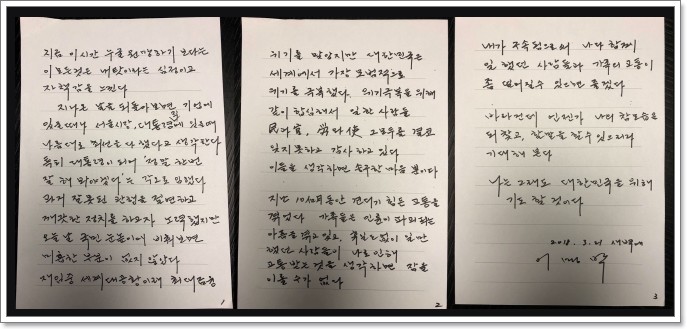 지금 이시간 누굴 원망하기 보다는
이 모든것은 내탓이라는 심정이고
자책감을 느낀다
지나온 날을 되돌아보면, 기업에
있을때나 서울시장, 대통령직에 있을때
나름대로 최선을 다 했다고 생각한다
특히 대통령이 되어 "정말 한번
잘 해 봐야겠다"는 각오로 임했다
과거 잘못된 관행을 절연하고
깨끗한 정치를 하고자 노력했지만
오늘 날 국민 눈높이에 비춰보면
미흡한 부분이 없지 않았다
재임중 세계대공황이래 최대 금융
1
위기를 맞았지만 대한민국은
세계에서 가장 모범적으로
위기를 극복했다. 위기극복을 위해
같이 합심해서 일한 사람들
民과 官, 勞와 使 그 모두를 결코
잊지못하고 감사하고 있다
이들을 생각하면 송구한 마음 뿐이다
지난 10개월 동안 견디기 힘든 고통을
겪었다 가족들은 인륜이 파괴되는
아픔을 겪고 있고, 휴일도 없이 일만
했던 사람들이 나로 인해
고통받는 것을 생각하면 잠을
이룰 수가 없다
2
내가 구속됨으로써 나와 함께
일했던 사람들과 가족의 고통이
좀 덜어질수 있으면 좋겠다
바라건대 언젠가 나의 참모습을
되찾고, 할말을 할 수 있으리라
기대해 본다
나는 그래도 대한민국을 위해
기도 할 것이다
2018. 3. 21 새벽에
이 명 박
3